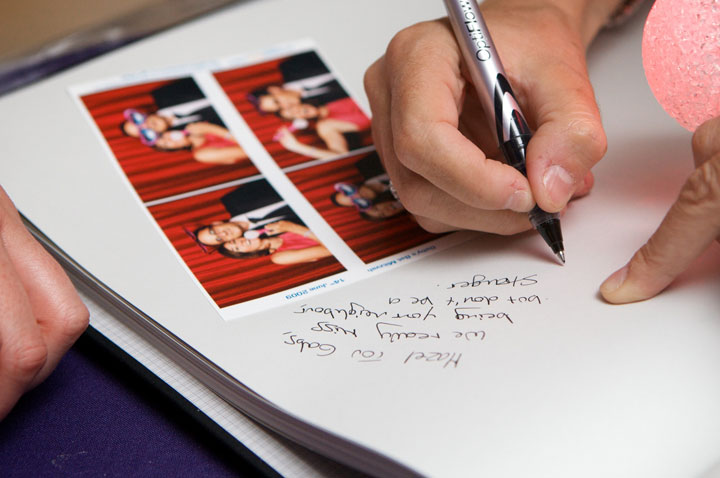 OptiFlow
Bat Mitzvah
14th June 2009
Mazel Tov Gabs,
We really miss
being your neighbour
but don't be a
Stranger.